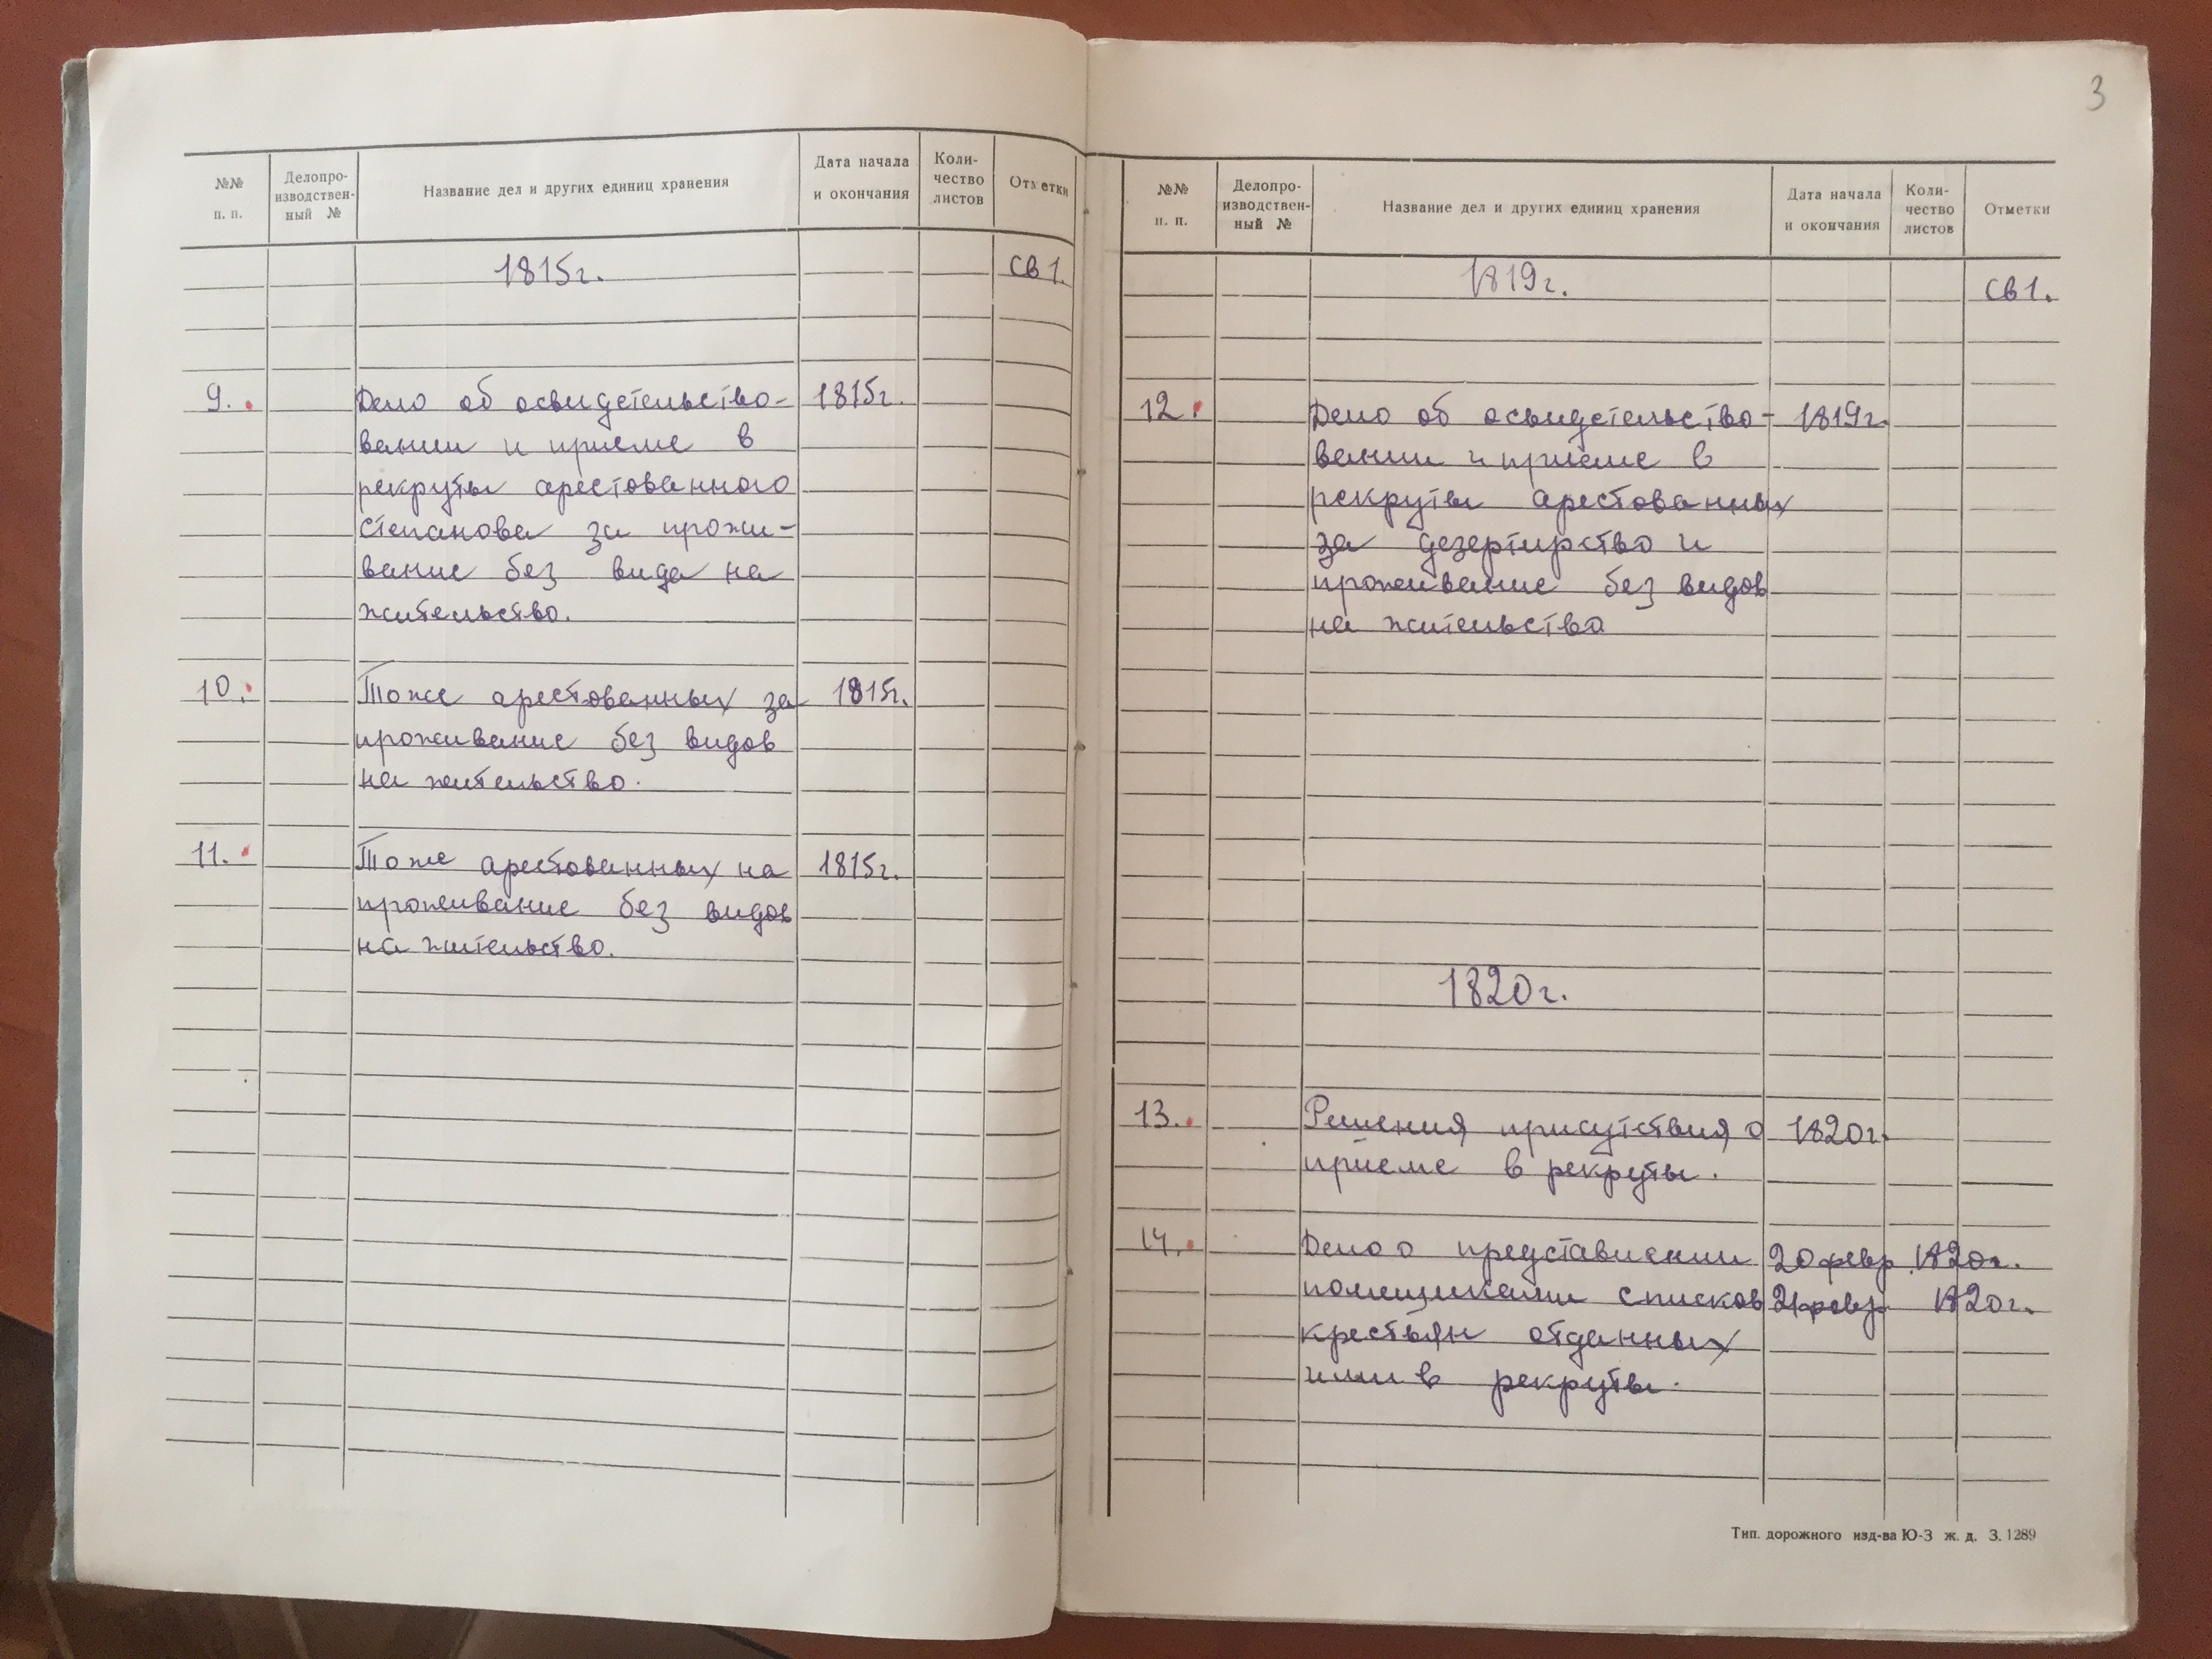 №№ п. п.
Делопро-
изводствен-
ный №
Название дел и других единиц хранения
Дата начала
и окончания
Коли-
чество
листов
Отметки
1815г.
св 1.
9.
Дело об освидетельство-
1815г.
вании и приеме в
рекруты арестованного
Степанова за прожи-
вание без вида на
жительство.
10.
Тоже арестованных за
1815г.
проживание без видов
на жительство.
11.
Тоже арестованных на
1815г.
проживание без видов
на жительство.
3
№№ п. п.
Делопро-
изводствен-
ный №
Название дел и других единиц хранения
Дата начала
и окончания
Коли-
чество
листов
Отметки
1819г.
св 1.
12.
Дело об освидетельство-
1819г.
вании и приёме в
рекруты арестованных
за дезертирство и
проживание без видов
на жительство
1820г.
13.
Решения присутствия о
1820г.
приеме в рекруты.
14.
Дело о представлении
20 февр. 1820г.
помещиками списков
21 февр. 1820г.
крестьян отданных
ими в рекруты.
Тип. дорожного изд-ва Ю-З ж. д. З. 1289